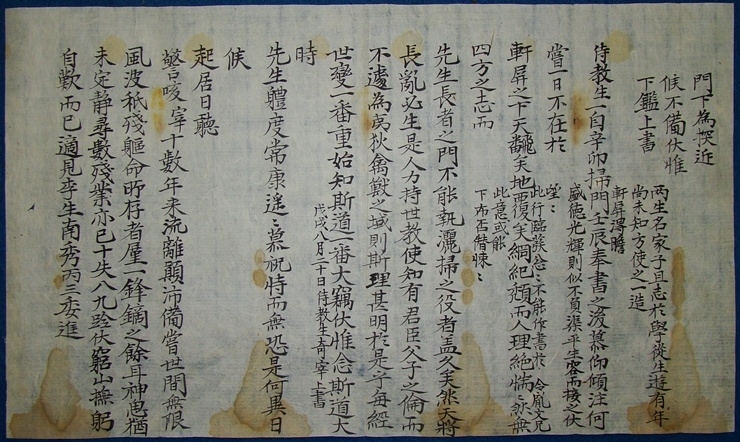 門下為探近
候不備伏惟
下鑑上書
兩生名家子且志於學從生遊有年
尚未知方使之一造
軒屏得瞻
盛德光輝則似不負渠平生容而接之伏
望〻
此行臨發忩〻不能作書於冷菴丈兄
此意或能
下布否僭悚〻
侍教生一自辛卯掃門壬辰奉書之後慕仰傾注何
嘗一日不在於
軒屏之下天飜矣地覆矣綱紀頹而人理絶惴〻然無
四方之志而
先生長者之門不能執灑掃之役者盖久矣然天將
長亂必生是人力持世教使知有君臣父子之倫而
不遽為夷狄禽獸之域則斯理甚明於是乎每經
世變一番重始知斯道一番大竊伏惟念斯道大
時
戊戌八月二十日侍教生奇宰上書
先生體度常康遙〻慕祝恃而無恐是何異日
候
起居日聽
謦咳宰十數年來流離顛沛備嘗世間無限
風波秖殘軀命所存者一鋒鏑之餘耳神思猶
未定靜尋數殘業亦已十失八九跧伏窮山撫躬
自歎而已適見李生南秀丙三委進